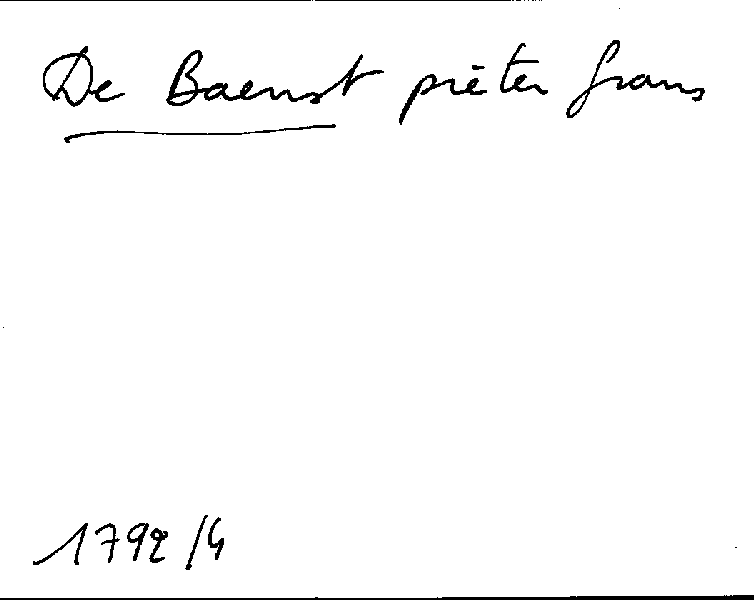 De Baenst pieter frans
1792/4